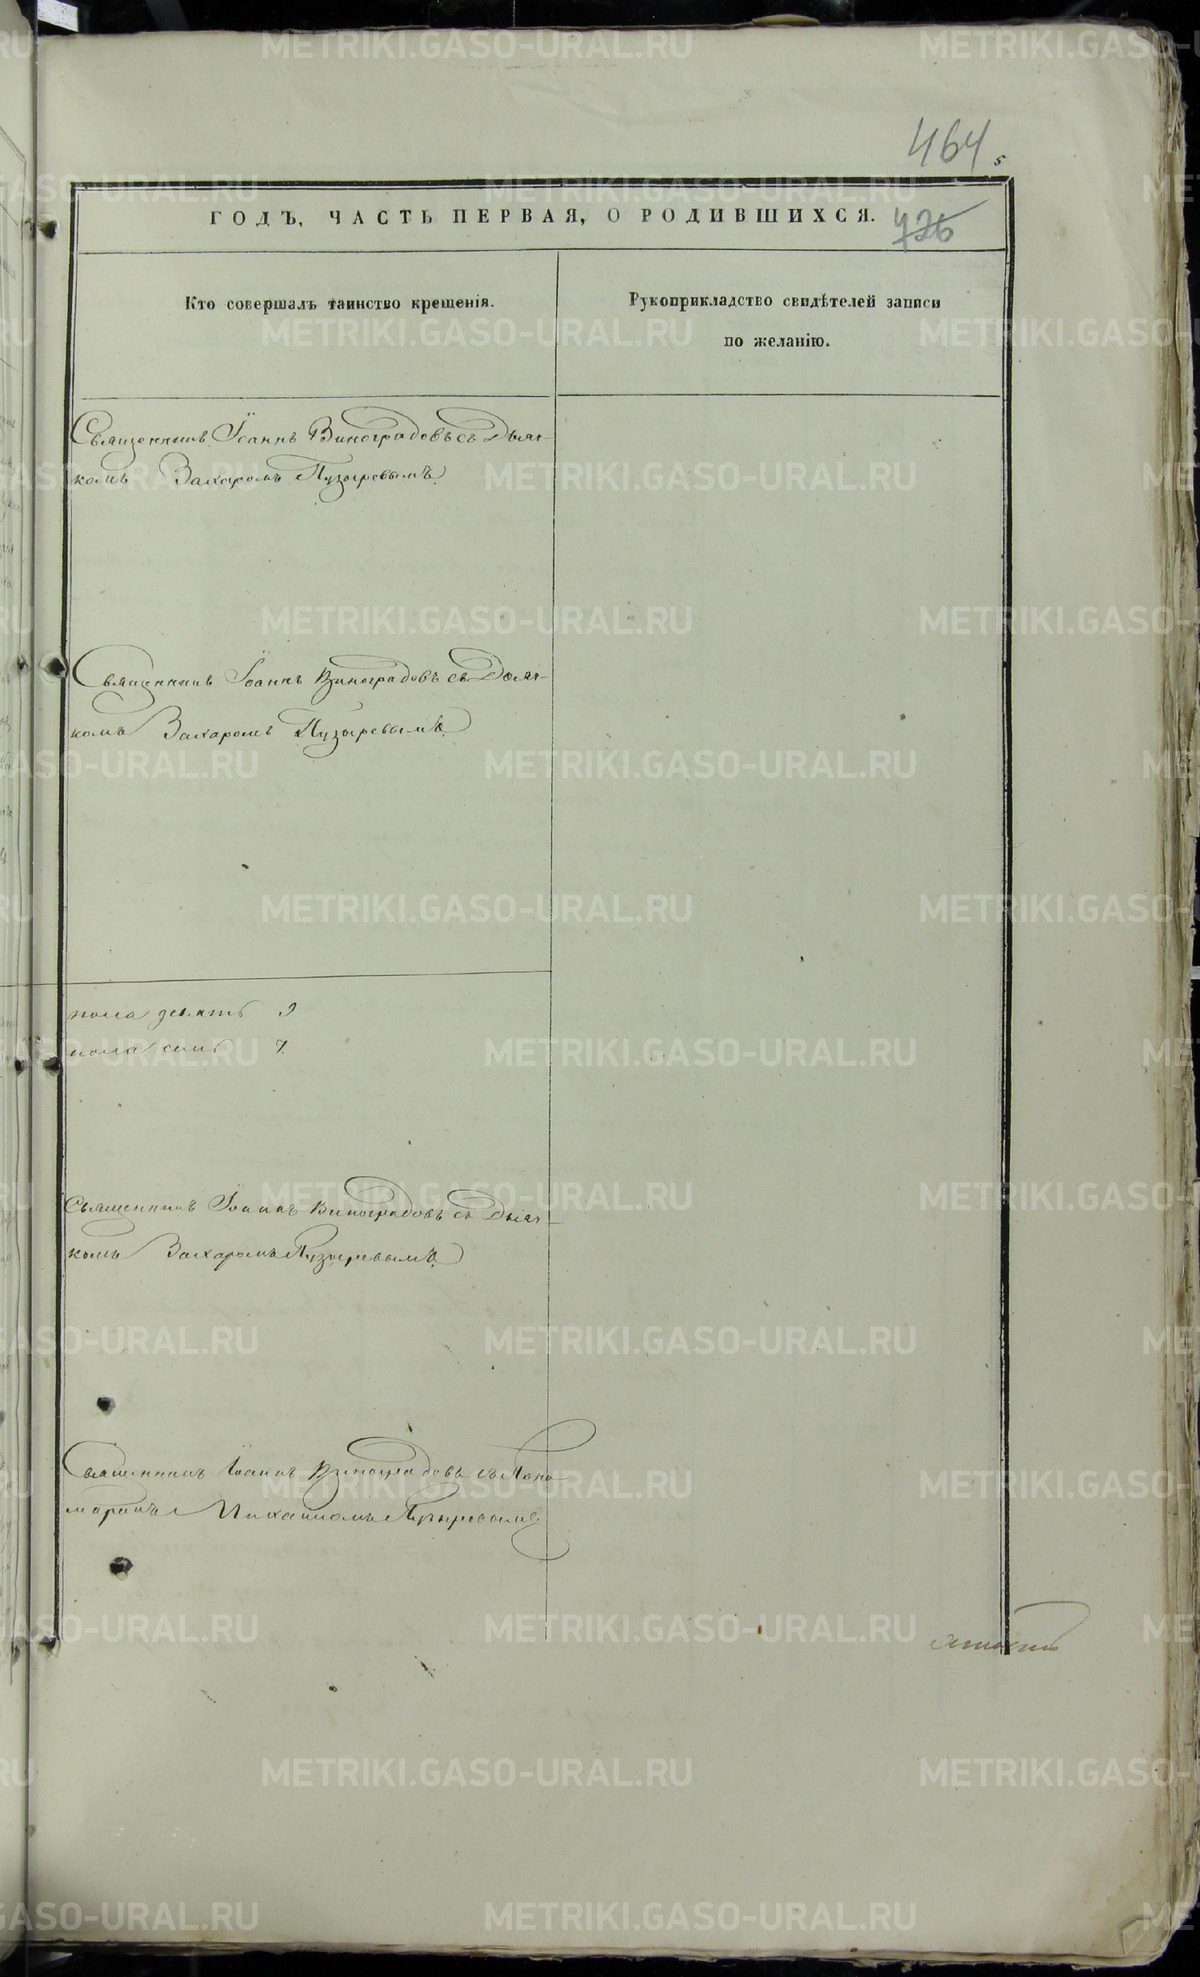 464
5
ГОДЪ, ЧАСТЬ ПЕРВАЯ, О РОДИВШИХСЯ.
726
Кто совершалъ таинство крещенія.
Рукоприкладство свидѣтелей записи
по желанію.
Священникъ Іоаннъ Виноградовъ съ Дьяч-
комъ Захаромъ Пузыревымъ.
Священникъ Іоаннъ Виноградовъ съ Дьяч-
комъ Захаромъ Пузыревымъ.
пола девять 9
пола семь 7.
Священникъ Іоаннъ Виноградовъ съ Дьяч-
комъ Захаромъ Пузыревымъ.
Священникъ Іоаннъ Виноградовъ съ Поно
маремъ Михаиломъ Пузыревымъ.
METRIKI.GASO-URAL.RU